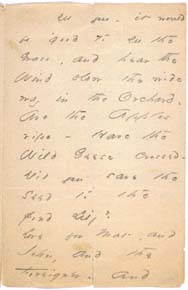 you - it would
be good to see the
Grass, and hear the
Wind blow the wide
way in the Orchard.
Are the Apples
ripe - Have the
Wild Geese crossed -
Did you save the
Seed to the
pond Lily?
Love for Mat, and
John, and the
Foreigner - And